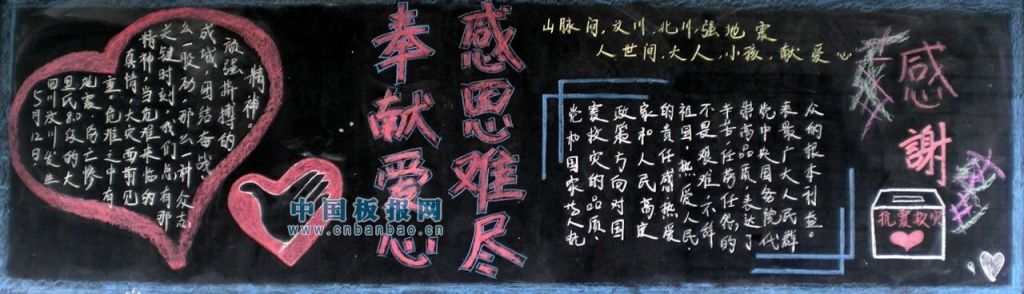 5月12日
四川汶川发生
里氏8.0级的大
地震,伤亡惨
重,危难之中有
真情,大灾面前见
精神,当危难来临的
之键时刻,我们总有那
么一股劲,那么一种众志
成城,团结奋战
顽强拼搏的
精神。
中国板报网
www.cnbanbao.cn
感思难尽
奉献爱心
山脉间,汶川,北川,强地震
人世间,大人,小孩,献爱心
党和国家抗
震救灾的品质、
政策方向对国
家和人民高度
的责任感热爱
祖国,热爱人民,
不是艰难、不辞
辛苦、任劳任怨的
崇高品质,表达了
党中央国务院代
表最广大人民群
众的根本利益。
感謝
抗震救灾